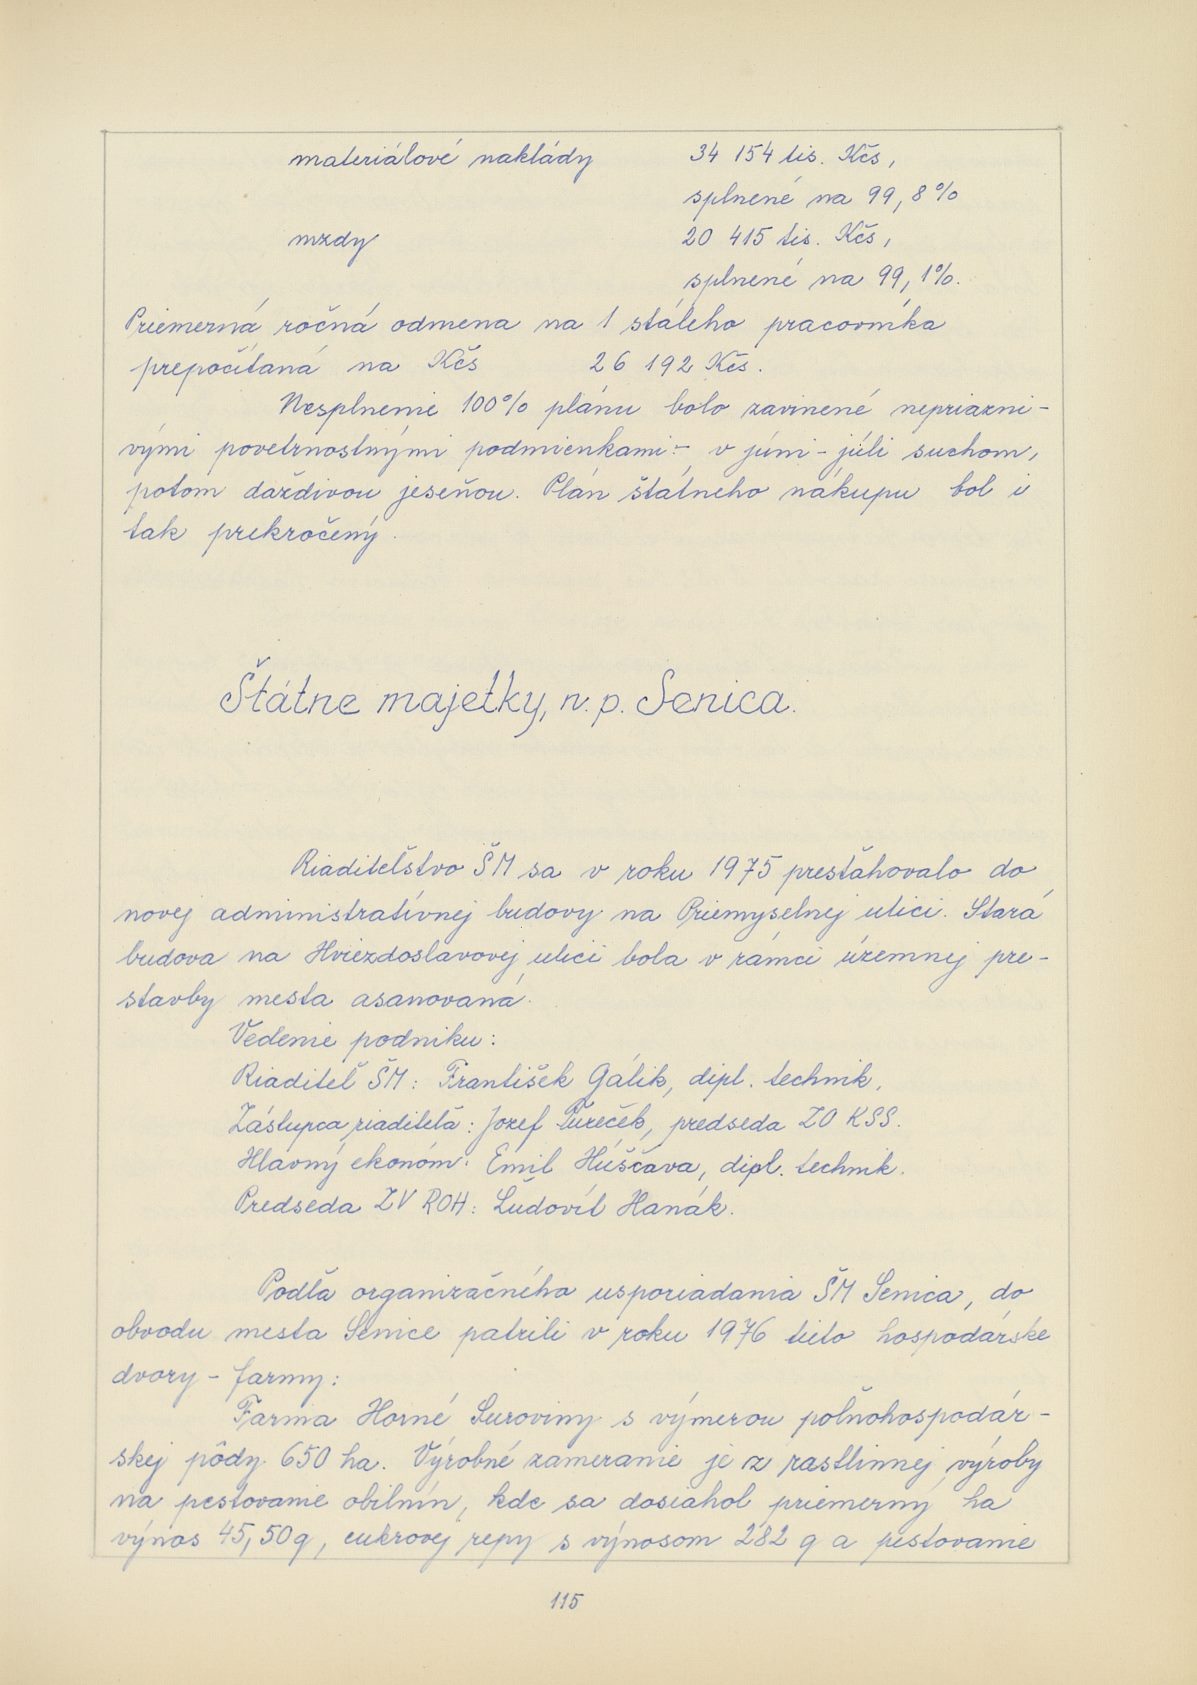 materiálové náklady 34 154 tis. Kčs,
splnené na 99,8%
mzdy 20 415 tis. Kčs,
splnené na 99,1%.
Priemerná ročná odmena na 1 stáleho pracovníka
prepočítaná na Kčs 26 192 Kčs.
Nesplnenie 100% plánu bolo zavinené nepriazni-
vými poveternostnými podmienkami - v júni - júli suchom,
potom daždivou jeseňou. Plán štátneho nákupu bol i
tak prekročený.
Štátne majetky, n. p. Senica.
Riaditeľstvo ŠM sa v roku 1975 presťahovalo do
novej administratívnej budovy na Priemyselnej ulici. Stará
budova na Hviezdoslavovej ulici bola v rámci územnej pre-
stavby mesta asanovaná.
Vedenie podniku:
Riaditeľ ŠM: František Gálik, dipl. technik,
Zástupca riaditeľa: Jozef Tureček, predseda ZO KSS.
Hlavný ekonóm: Emil Húščava, dipl. technik.
Predseda ZV ROH: Ľudovít Hanák.
Podľa organizačného usporiadania ŠM Senica, do
obvodu mesta Senice patrili v roku 1976 tieto hospodárske
dvory - farmy:
Farma Horné Suroviny s výmerou poľnohospodár-
skej pôdy 650 ha. Výrobné zameranie je z rastlinnej výroby
na pestovanie obilnín, kde sa dosiahol priemerný ha
výnos 45,50 q, cukrovej repy s výnosom 282 q a pestovanie
115